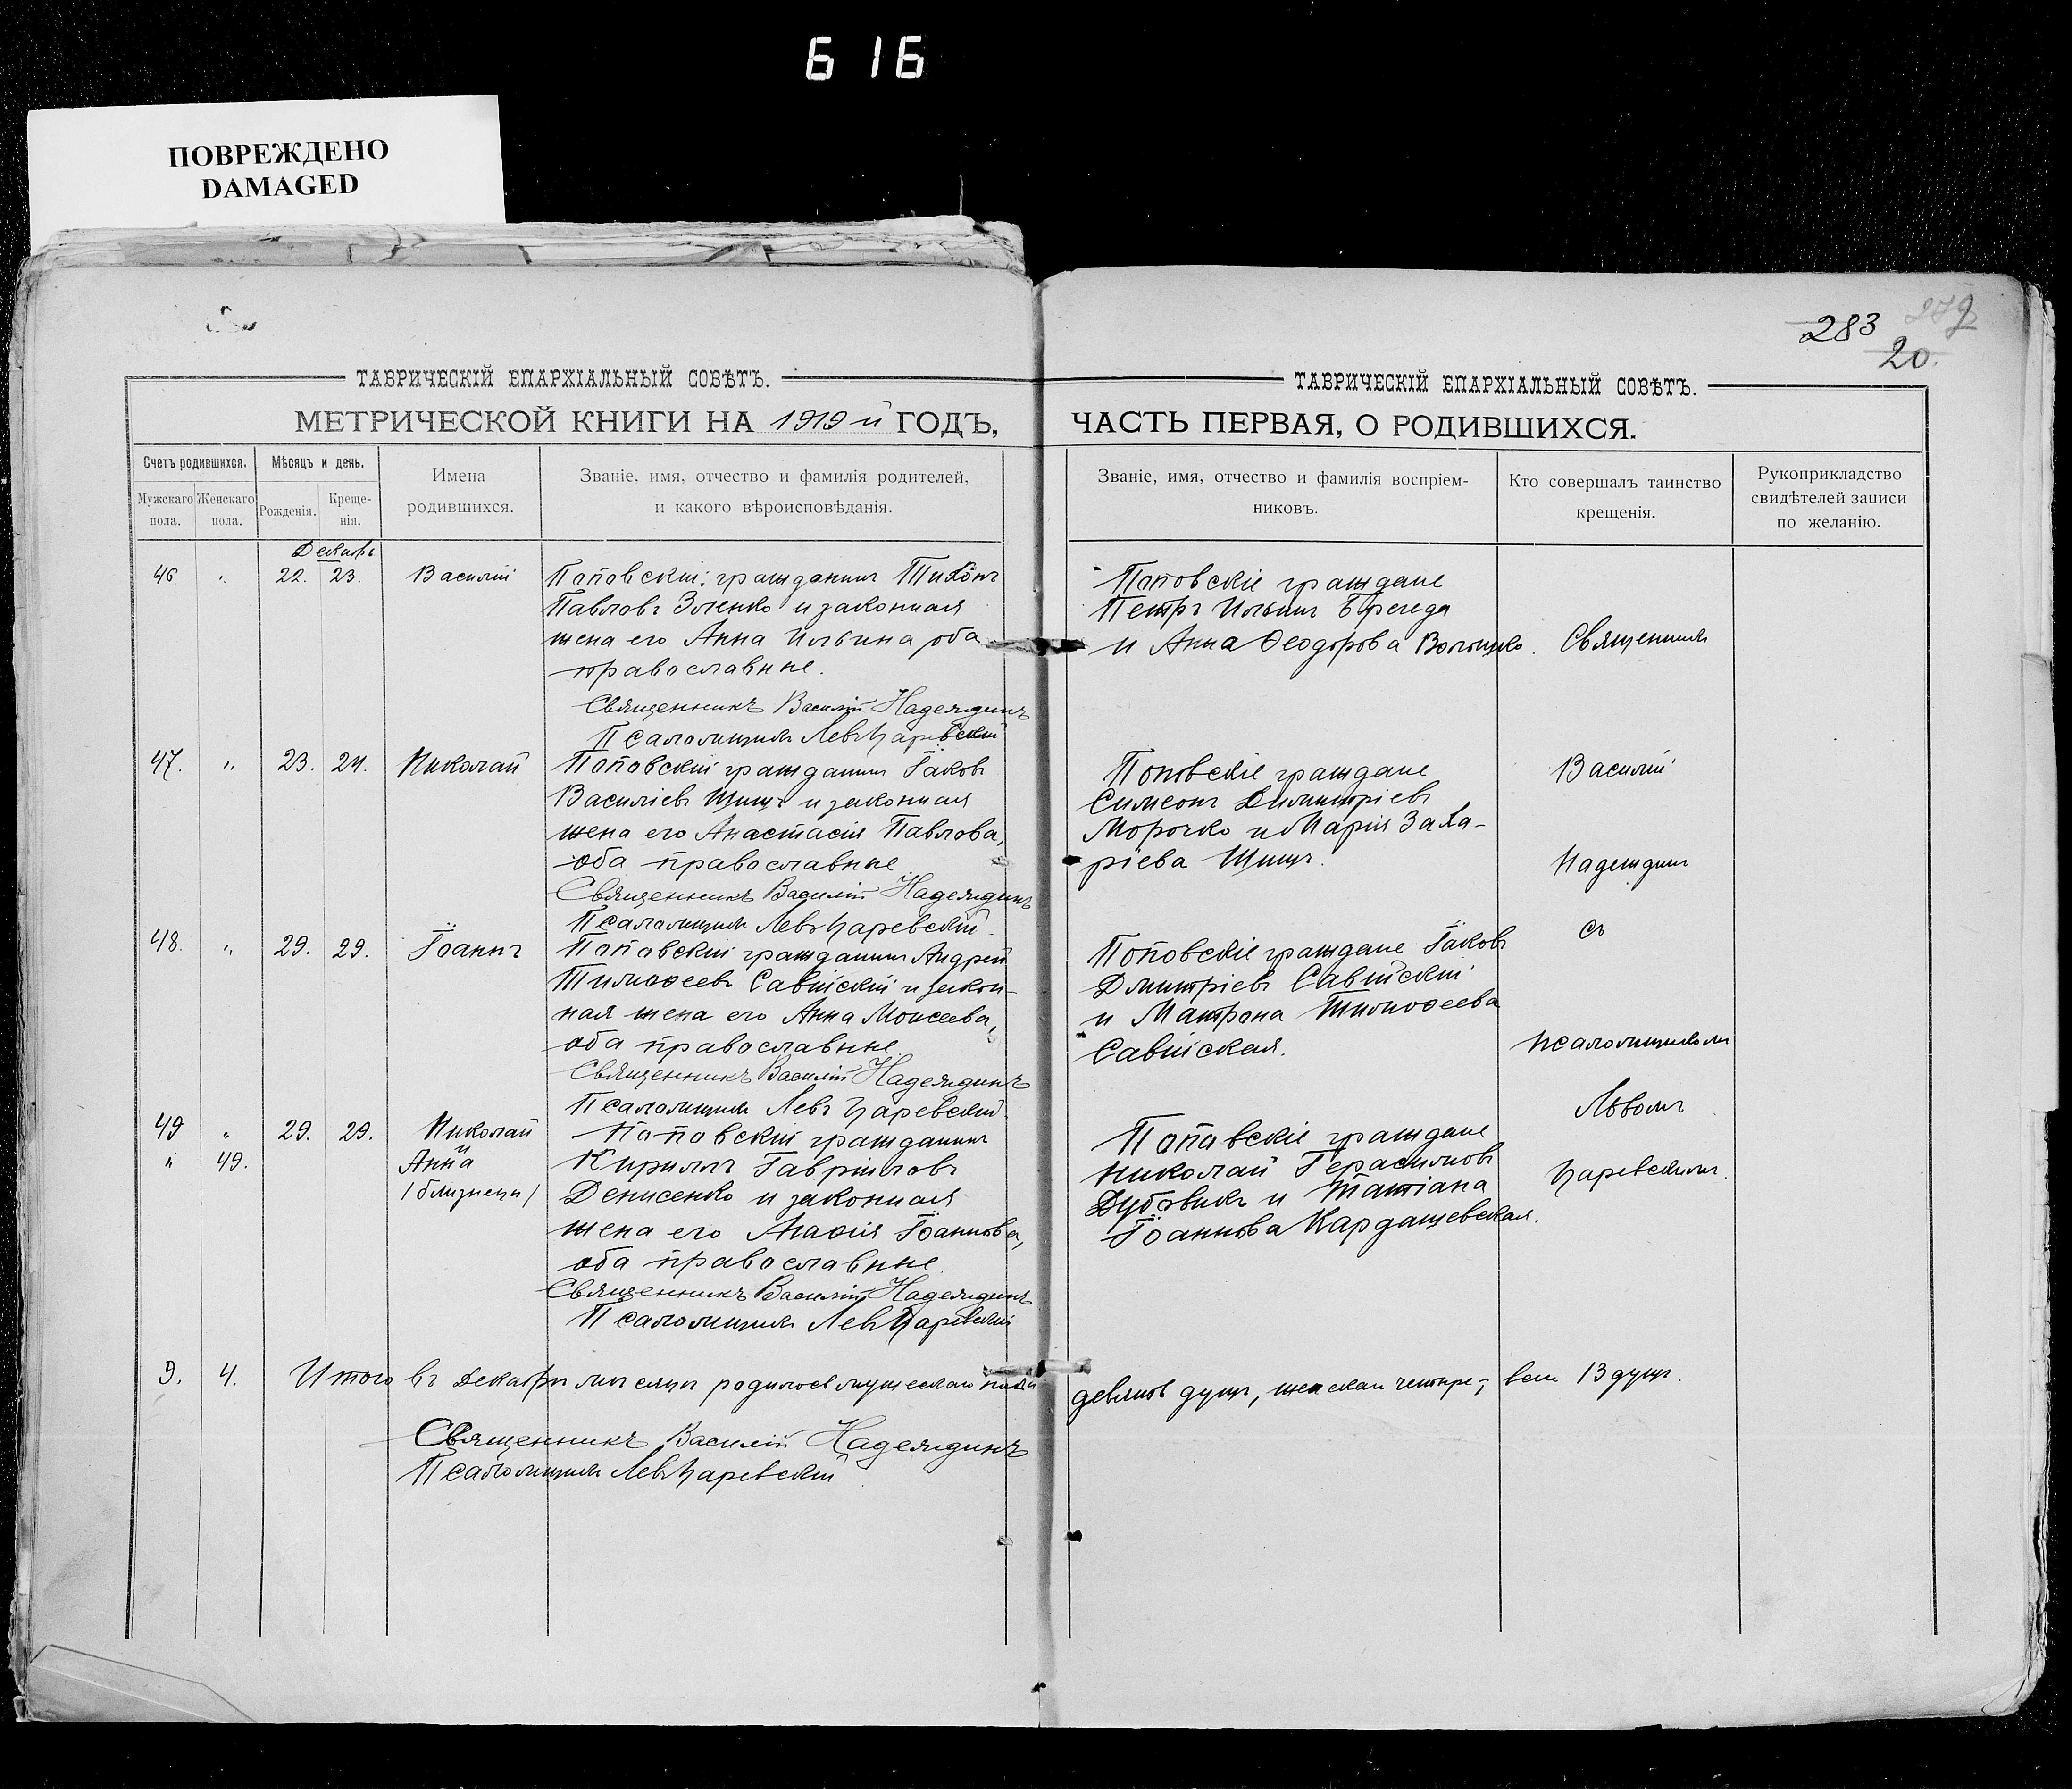 616
ПОВРЕЖДЕНО
DAMAGED
283
20.
ТАВРИЧЕСКІЙ ЕПАРХІАЛЬНЫЙ СОВѢТЪ.
МЕТРИЧЕСКОЙ КНИГИ НА 1919 й ГОДЪ,
Счетъ родившихся.
Мѣсяцъ и день.
Имена
родившихся.
Званіе, имя, отчество и фамилія родителей,
и какого вѣроисповѣданія.
Мужскаго
пола.
Женскаго
пола.
Рожденія.
Креще-
нія.
Декабрь
46 " 22. 23. Василій
Поповскій гражданинъ Тихонъ
Павловъ Зленко и законная
жена его Анна Ильина, оба
православные.
Священникъ Василій Надеждинъ
Псаломщикъ Левъ Царевскій
47. " 23. 24. Николай
Поповскій гражданинъ Іаковъ
Василіевъ Шищъ и законная
жена его Анастасія Павлова,
оба православные
Священникъ Василій Надеждинъ
Псаломщикъ Левъ Царевскій.
48. " 29. 29. Іоаннъ
Поповскій гражданинъ Андрей
Тимоѳеевъ Савійскій и закон-
ная жена его Анна Моисеева,
оба православные.
Священникъ Василій Надеждинъ
Псаломщикъ Левъ Царевскій
49 " 29. 29. Николай
" 49. и
Анна
/близнецы/
Поповскій гражданинъ
Кириллъ Гавріиловъ
Денисенко и законная
жена его Агаѳія Іоаннова,
оба православные.
Священникъ Василій Надеждинъ
Псаломщикъ Левъ Царевскій
9. 4. Итого въ Декабрѣ мѣсяцѣ родилось мужескаго пола
Священникъ Василій Надеждинъ
Псаломщикъ Левъ Царевскій
ТАВРИЧЕСКІЙ ЕПАРХІАЛЬНЫЙ СОВѢТЪ.
ЧАСТЬ ПЕРВАЯ, О РОДИВШИХСЯ.
Званіе, имя, отчество и фамилія воспріем-
никовъ.
Кто совершалъ таинство
крещенія.
Рукоприкладство
свидѣтелей записи
по желанію.
Поповскіе граждане
Петръ Ильинъ
и Анна Ѳеодорова
Поповскіе граждане
Симеонъ Димитріевъ
Морочко и Марія Заха-
ріева Шищъ.
Поповскіе граждане Іаковъ
Дмитріевъ Савійскій
и Матрона Тимоѳеева
Савійская.
Поповскіе граждане
Николай Герасимовъ
Дубовикъ и Татіана
Іоаннова Кардашевская.
Священникъ
Василій
Надеждинъ
съ
псаломщикомъ
Львомъ
Царевскимъ.
девять душъ, женскаго четыре, всего 13 душъ.